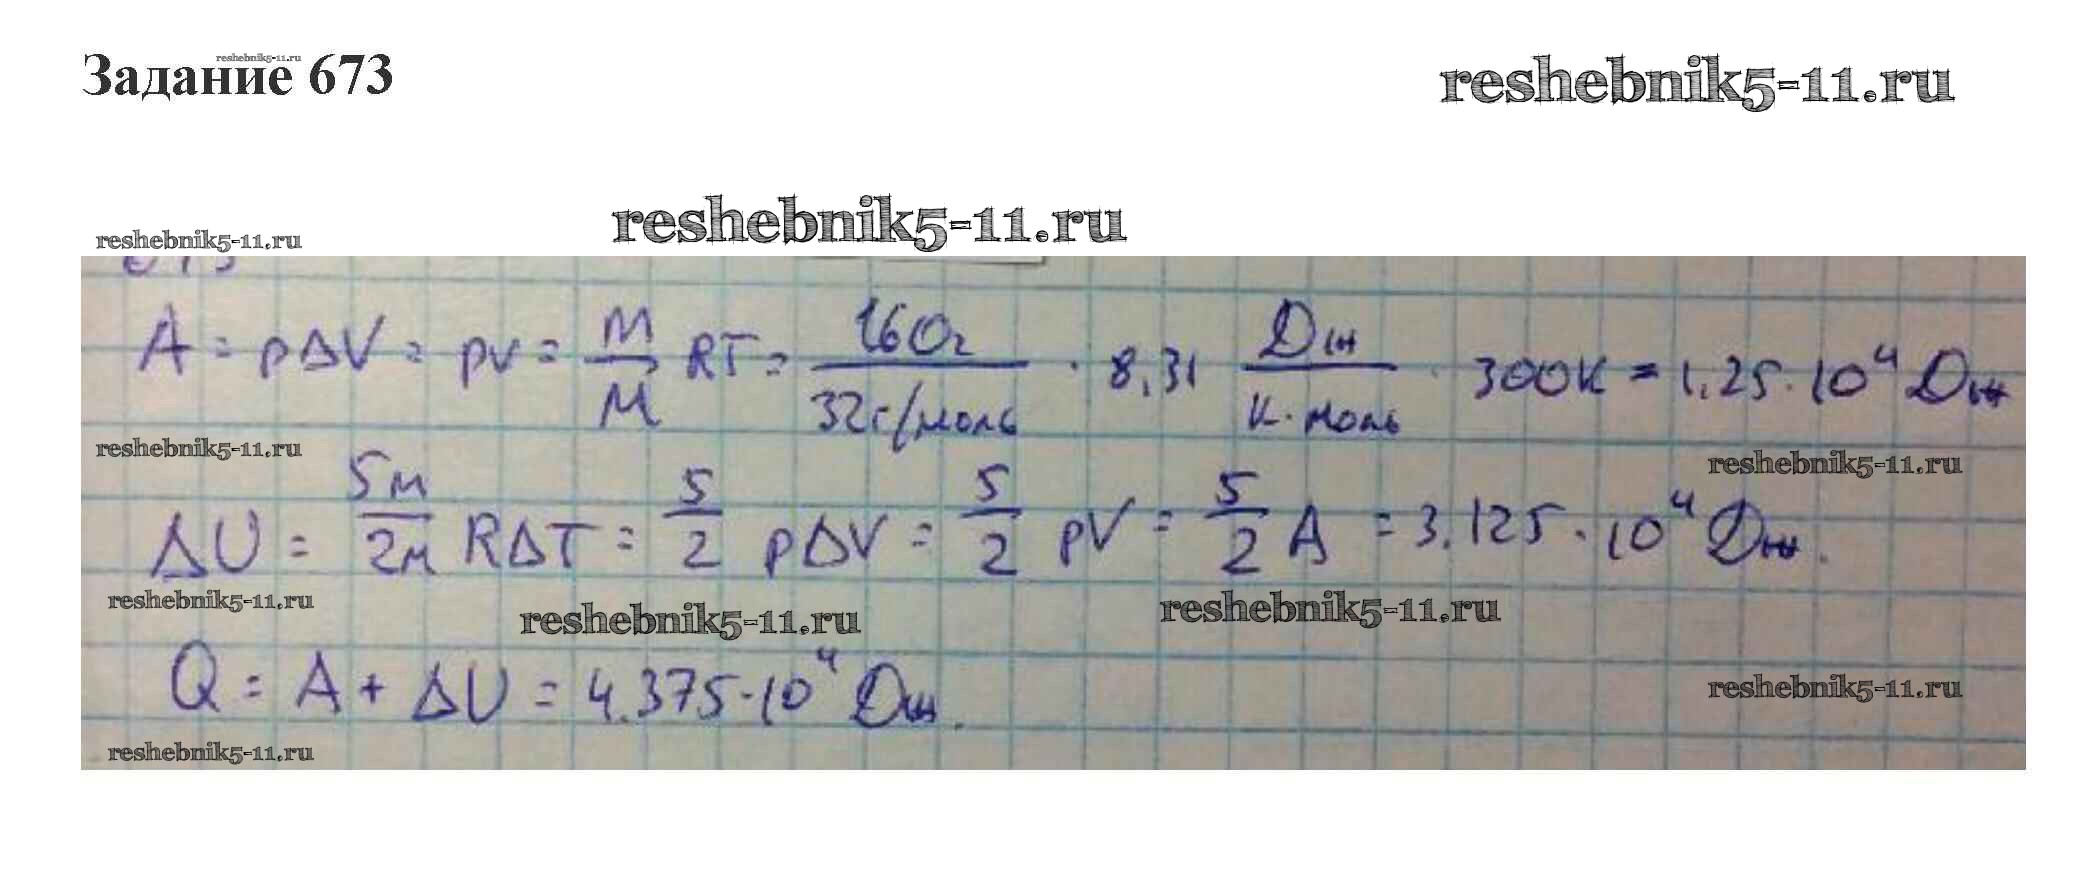 Задание 673
reshebnik5-11.ru
reshebnik5-11.ru
reshebnik5-11.ru
reshebnik5-11.ru
673
A = pΔV = pv = m/M RT = 160г/32г/моль · 8,31 Дж/К·моль · 300К = 1,25·10⁴ Дж
reshebnik5-11.ru
reshebnik5-11.ru
ΔU = 5м/2м RΔT = 5/2 pΔV = 5/2 pV = 5/2 A = 3,125·10⁴ Дж.
reshebnik5-11.ru
reshebnik5-11.ru
reshebnik5-11.ru
Q = A + ΔU = 4,375·10⁴ Дж.
reshebnik5-11.ru
reshebnik5-11.ru